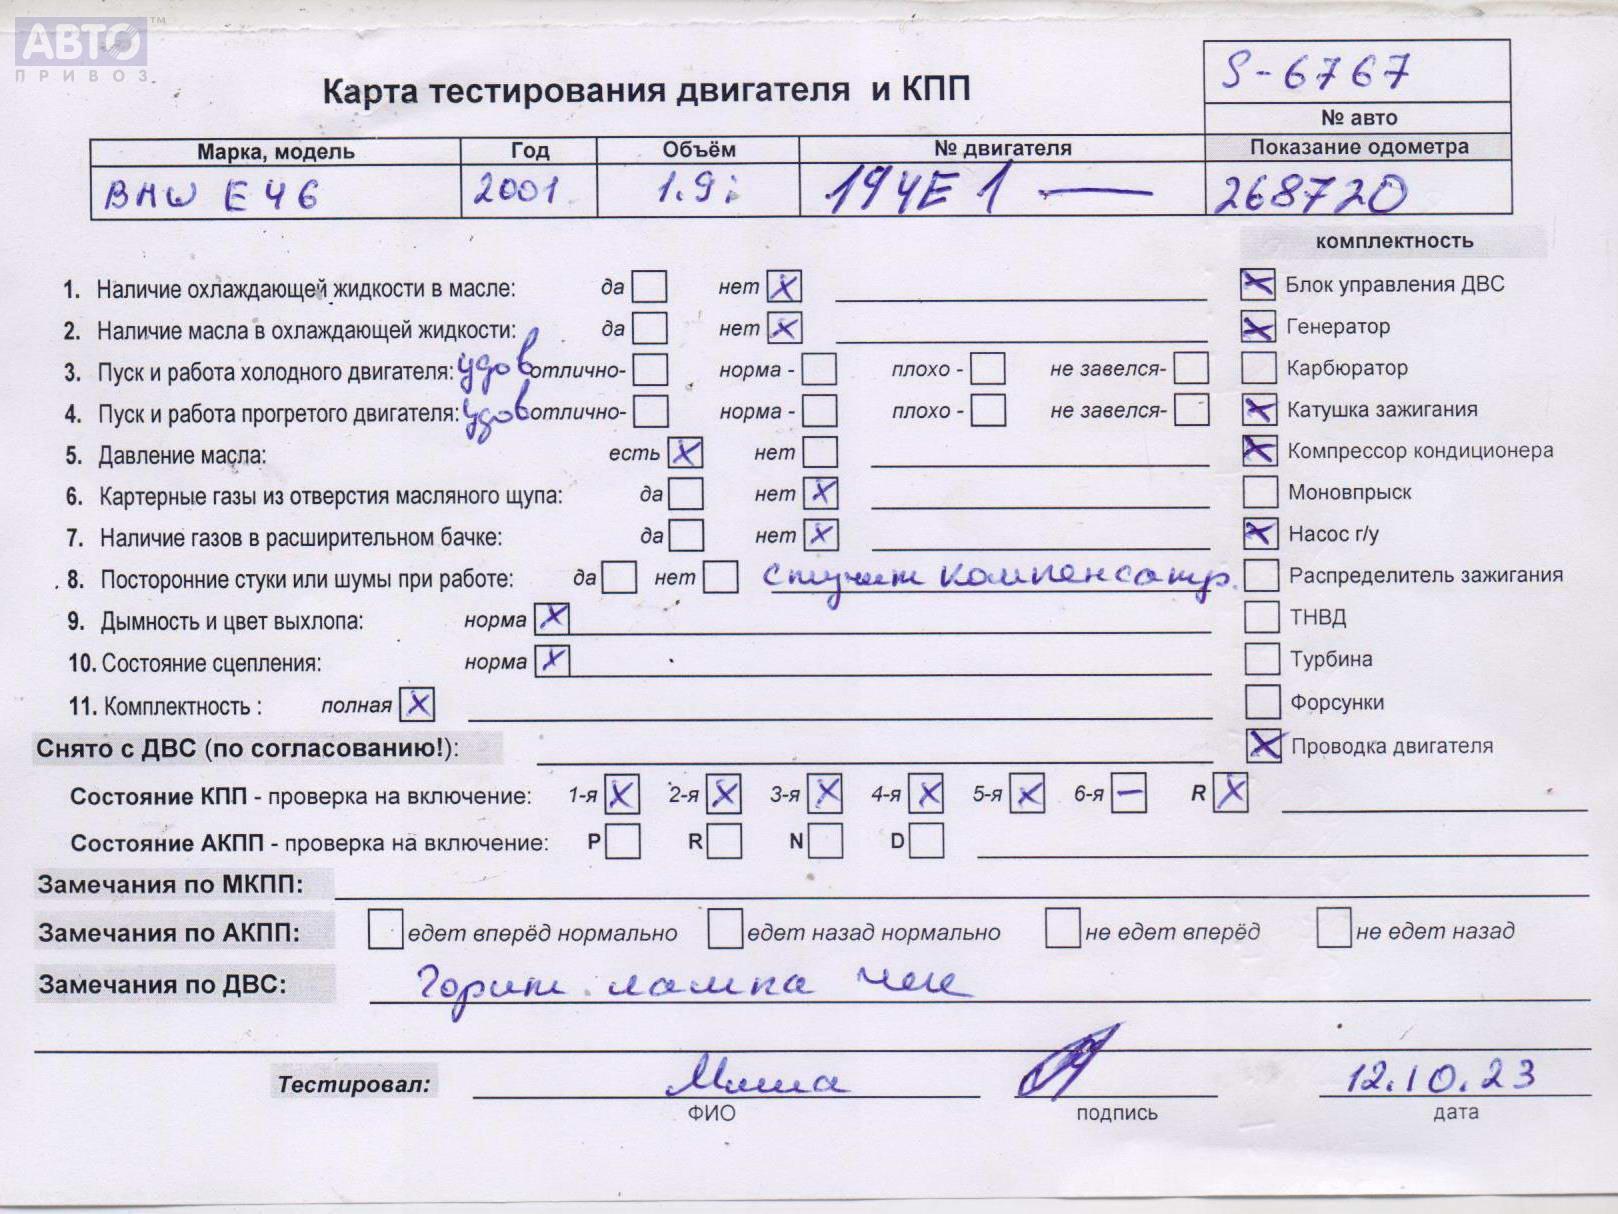 АВТО™
ПРИВОЗ
Карта тестирования двигателя и КПП
S-6767
№ авто
Марка, модель Год Объём № двигателя Показание одометра
BMW E46 2001 1.9i 194E1 — 268720
комплектность
1. Наличие охлаждающей жидкости в масле: да нет X
X Блок управления ДВС
2. Наличие масла в охлаждающей жидкости: да нет X
X Генератор
3. Пуск и работа холодного двигателя: удов отлично- норма - плохо - не завелся-
Карбюратор
4. Пуск и работа прогретого двигателя: удов отлично- норма - плохо - не завелся-
X Катушка зажигания
5. Давление масла: есть X нет
X Компрессор кондиционера
6. Картерные газы из отверстия масляного щупа: да нет X
Моновпрыск
7. Наличие газов в расширительном бачке: да нет X
X Насос г/у
8. Посторонние стуки или шумы при работе: да нет стучит компенсатр.
Распределитель зажигания
9. Дымность и цвет выхлопа: норма X
ТНВД
10. Состояние сцепления: норма X
Турбина
11. Комплектность : полная X
Форсунки
Снято с ДВС (по согласованию!):
X Проводка двигателя
Состояние КПП - проверка на включение: 1-я X 2-я X 3-я X 4-я X 5-я X 6-я — R X
Состояние АКПП - проверка на включение: P R N D
Замечания по МКПП:
Замечания по АКПП: едет вперёд нормально едет назад нормально не едет вперёд не едет назад
Замечания по ДВС: Горит лампа чек
Тестировал: Миша 12.10.23
ФИО подпись дата